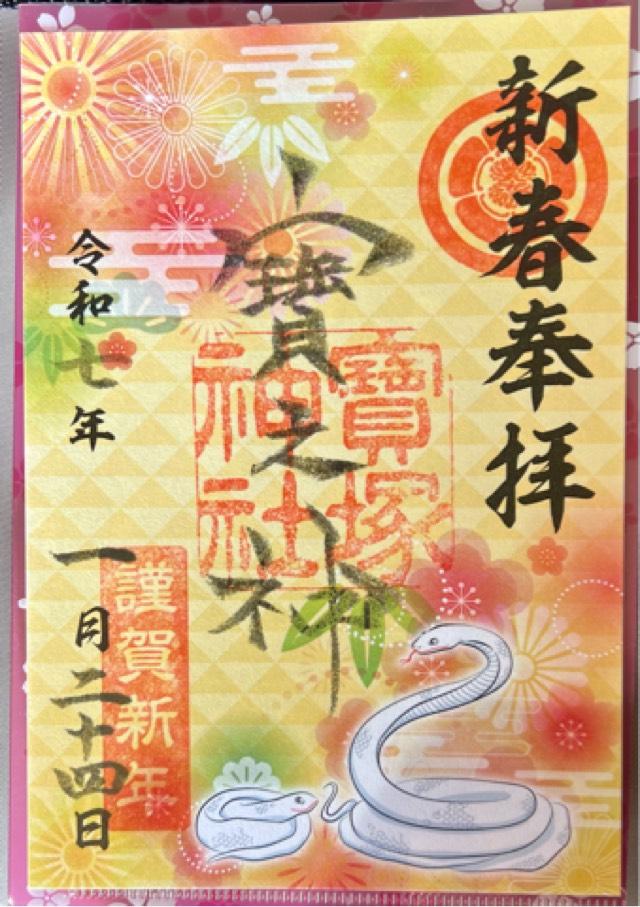 新春奉拝
寶之神
寶塚
神社
令和七年
一月二十四日
謹賀新年